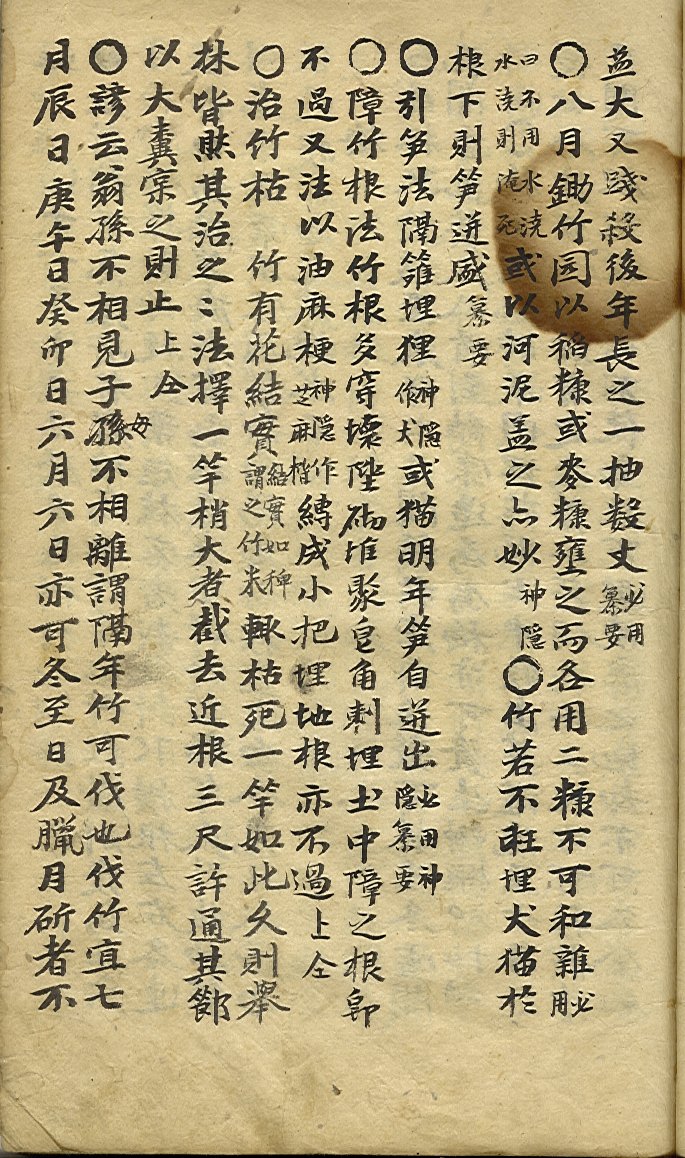 益大又践殺後年長之一抽数丈必用纂要
〇八月鋤竹园以稻糠或麥糠壅之而各用二糠不可和雜必用
曰不用水澆水澆則淹死或以河泥盖之亦妙神隱〇竹若不旺埋犬猫於
根下則笋迸盛纂要
〇引笋法隔籬埋狸神隱作犬或猫明年笋自迸出必用神隱纂要
〇障竹根法竹根多穿壞陛砌堆聚皂角刺埋土中障之根卽
不過又法以油麻梗神隱作芝麻楷縛成小把埋地根亦不過上仝
〇治竹枯 竹有花結實結實如稗謂之竹米輒枯死一竿如此久則舉
林皆然其治之〻法擇一竿梢大者截去近根三尺許通其節
以大糞宲之則止上仝
〇諺云翁孫不相見子母孫不相離謂隔年竹可伐也伐竹宜七
月辰日庚午日癸卯日六月六日亦可冬至日及臘月斫者不